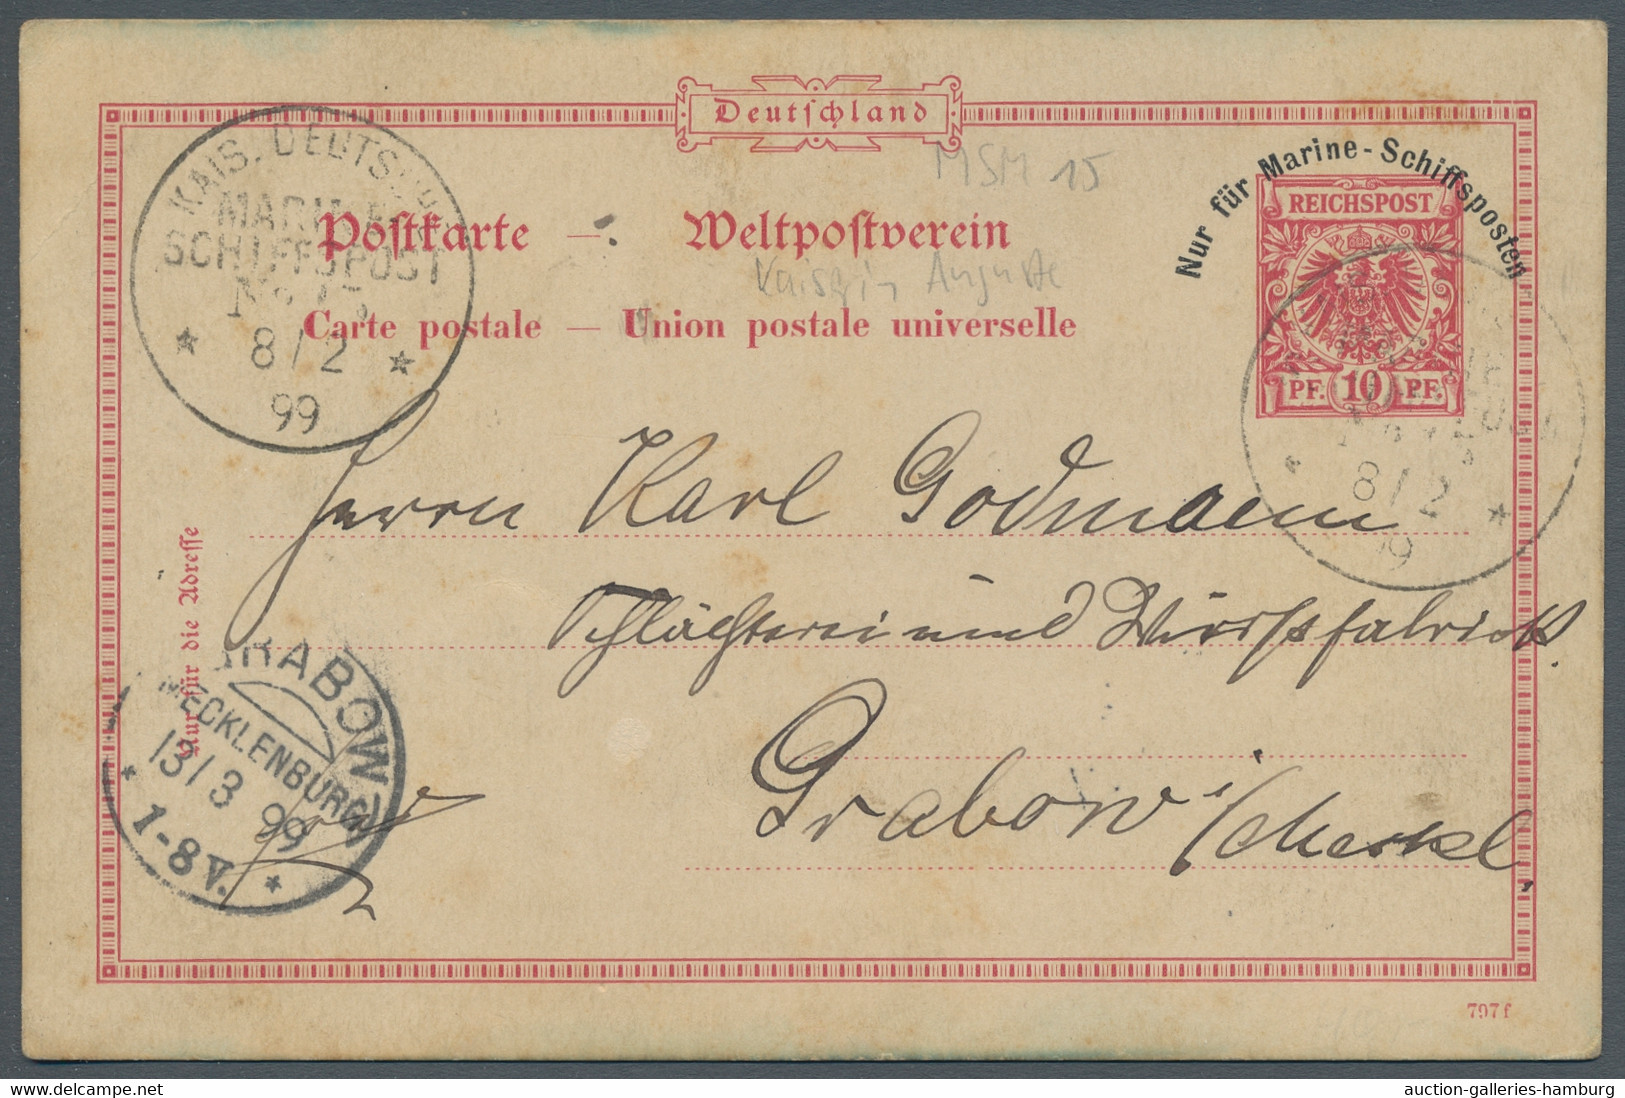 Deutschland
Nur für Marine-Schiffsposten
REICHSPOST
PF. 10 PF.
MSM 15
KAIS. DEUTSCHE
MARINE
SCHIFFSPOST
No 15
8/2
99
Postkarte — Weltpostverein
Kaiserin Auguste
Carte postale — Union postale universelle
8/2
Herrn Karl Godmann
Schlächterei und Wurstfabrick
Grabow i/Meckl,
Nur für die Adresse
GRABOW
MECKLENBURG
13/3 99
1-8V.
797f
delcampe.net
auction-galleries-hamburg